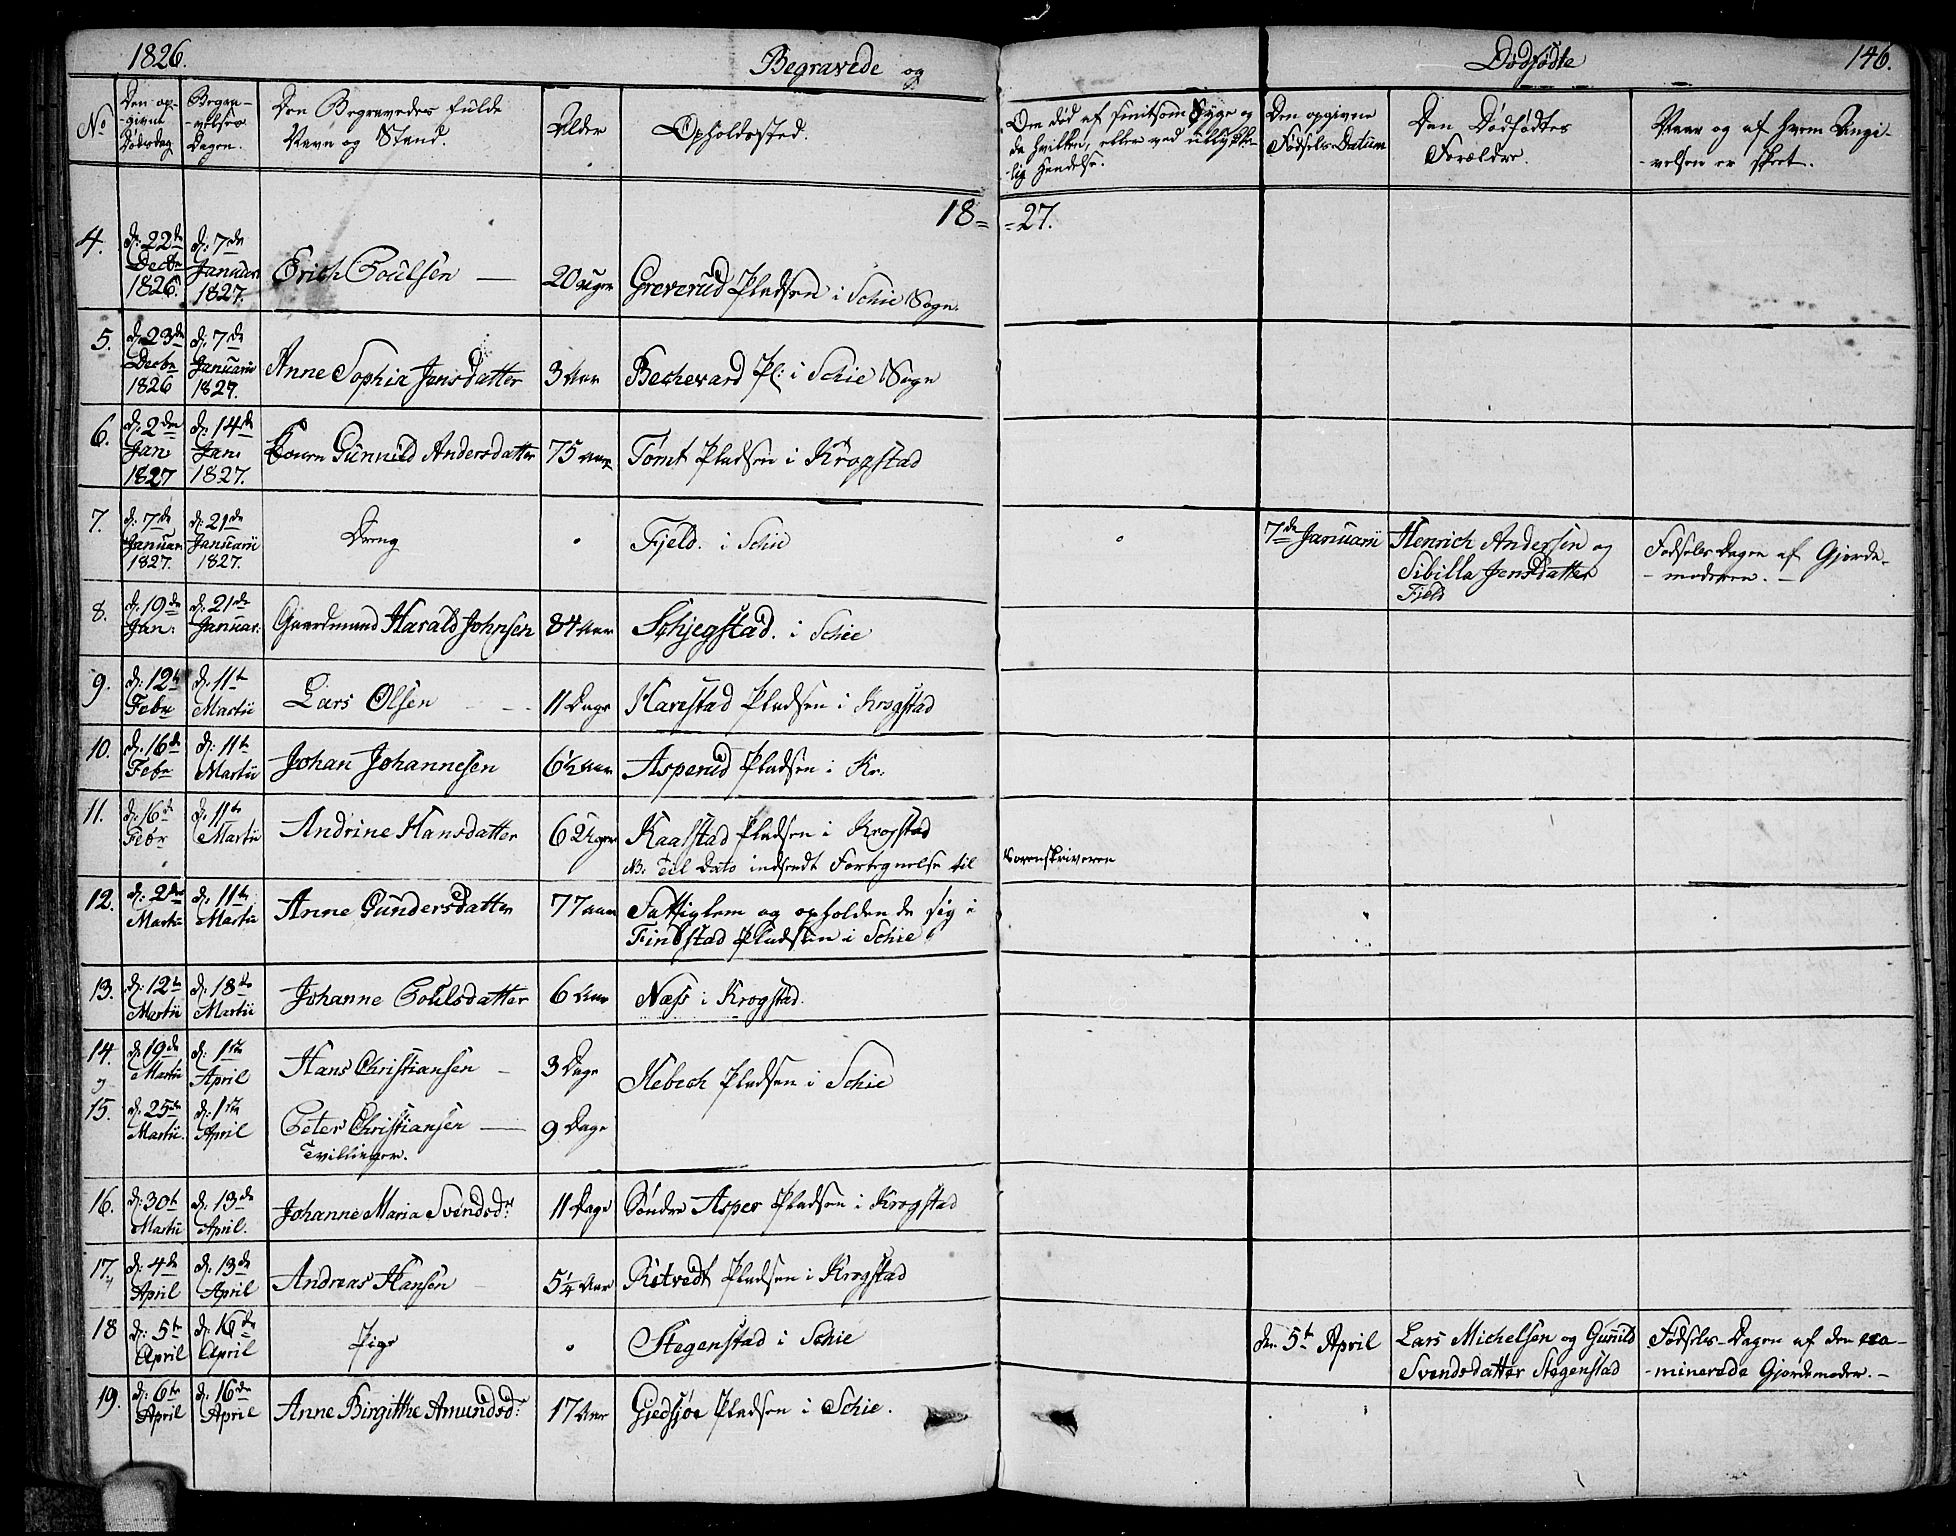 1826. Begravede og Dødfødte 146.
No
Den op-
-givne
Dødsdag
Begra-
-velses
Dagen.
Den Begravedes fulde
Navn og Stand.
Alder
Opholdssted.
Om død af smitsom Syge og
da hvilken, eller ved ulykke-
-lig Hendelse.
Den opgivne
Fødsels Datum
Den Dødfødtes
Forældre.
Naar og af hvem Angi-
-velsen er skeet.
18= =27.
4. d: 22de Decbr 1826. d: 7de Januar 1827. Erich Poulsen — 20 uger Greverud Pladsen i Schie Sogn.
5. d: 23de Decbr 1826 d: 7de Januarii 1827. Anne Sophia Jensdatter 3 Aar Bechevard Pl: i Schie Sogn
6. d: 2den Jan: 1827 d: 14de Jan: 1827. Gunnild Andersdatter 75 Aar Tomt Pladsen i Krogstad
7. d: 7de Januar 1827. d: 21de Januarii 1827. Dreng Fjeld. i Schie 7de Januarii Henrich Andersen og
Sibilla Jensdatter
Fjeld
Fødsels Dagen af Gjorde-
-moderen. —
8. d: 19de Jan: d: 21de Januar: Gaardmand Harald Johnsen 84 Aar Schjegstad. i Schie
9. d: 12te Febr d: 11te Martii Lars Olsen 11 Dage Harestad Pladsen i Krogstad
10. d: 16de Febr d: 11te Martii Johan Johannesen 6½ Aar Asperud Pladsen i Kr:
11. d: 16de Febr d: 11te Martii Andrine Hansdatter 6 Uger Kaalstad Pladsen i Krogstad
NB. Til Dato indsendt Fortegnelse til Sorenskriveren
12. d: 2den Martii d: 11te Martii Anne Gundersdatter 77 Aar Fattiglem og opholdende sig i
Finbstad Pladsen i Schie
13. d: 12te Martii d: 18de Martii Johanne Poulsdatter 6 Aar Næss i Krogstad.
14. d: 19de Martii d: 1ste April Hans Christiansen — 3 Dage Hebech Pladsen i Schie
15. d: 25de Martii. d: 1ste April Peter Christiansen — 9 Dage
Tvillinger.
16. d: 30te Martii d: 13de April. Johanne Maria Svendsdr 11 Dage Søndre Asper Pladsen i Krogstad
17. d: 4de April d: 13de April Andreas Hansen 5¼ Aar Retvedt Pladsen i Krogstad
18 d: 5te April d: 16de April Pige Stegenstad i Schie den 5te April Lars Michelsen og Gunild
Svendsdatter Stegenstad
Fødsels-Dagen af den exa-
-minerede Gjordemoder. —
19. d: 6te April d: 16de April Anne Birgitthe Amundsdr 17 Aar Gjedsjøe Pladsen i Schie.